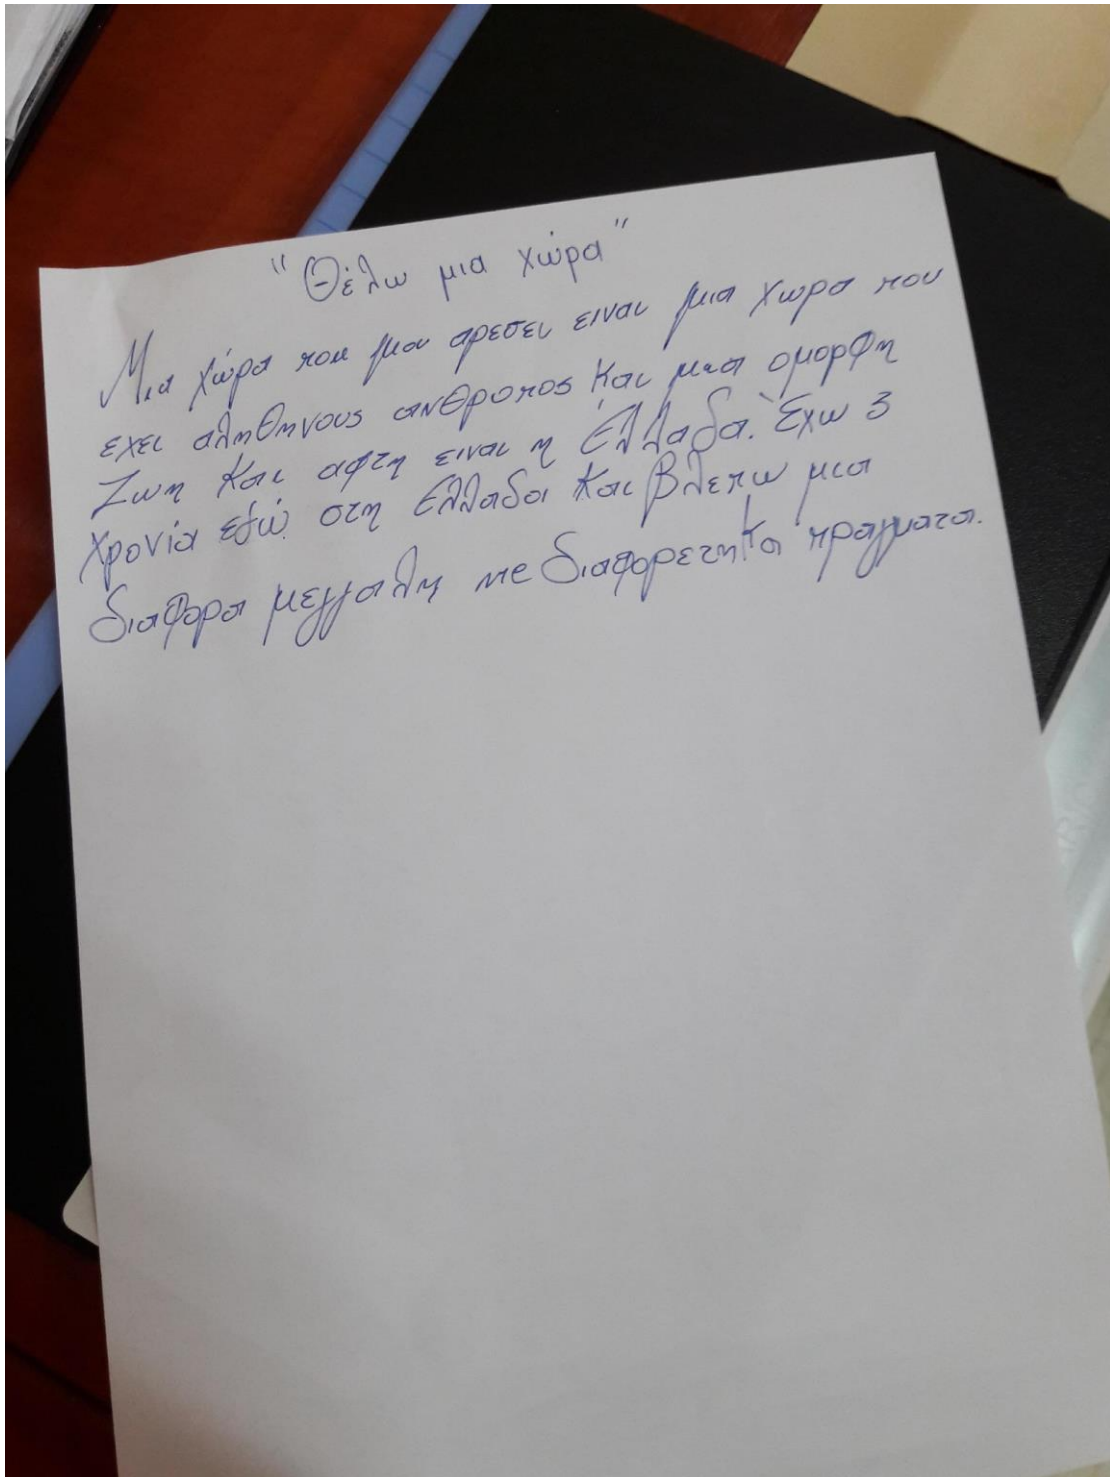 "Θέλω μια χώρα"
Μια χώρα που μου αρεσει ειναι μια χωρα που
εχει αληθηνους ανθροπος Και μια ομορφη
Ζωη Και αφτη ειναι η Έλλαδα. Έχω 3
χρονία εδώ στη Ελλαδα Και βλεπω μια
διαφορα μεγγαλη με διαφορετηκα πραγματα.